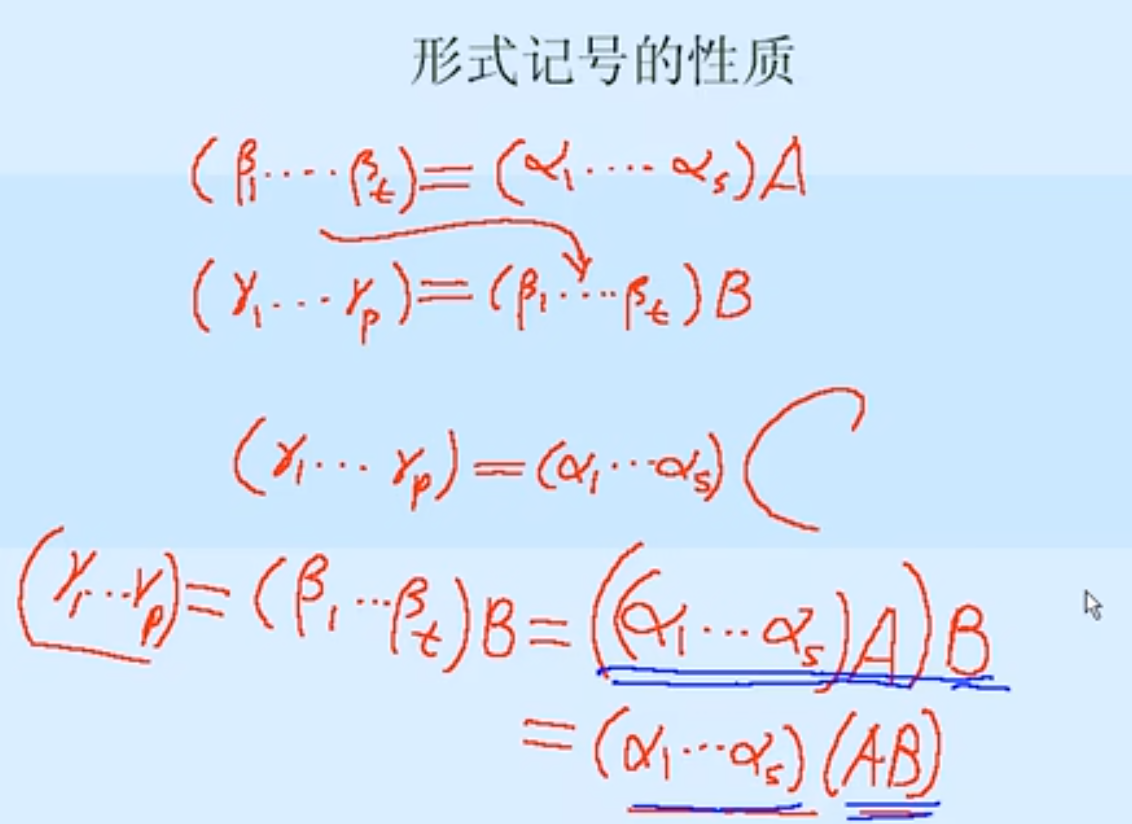 形式记号的性质
(β₁····βₜ)=(α₁····αₛ)A
(γ₁···γₚ)=(β₁····βₜ)B
(γ₁···γₚ)=(α₁···αₛ)C
(γ₁···γₚ)=(β₁···βₜ)B=((α₁···αₛ)A)B
=(α₁···αₛ)(AB)